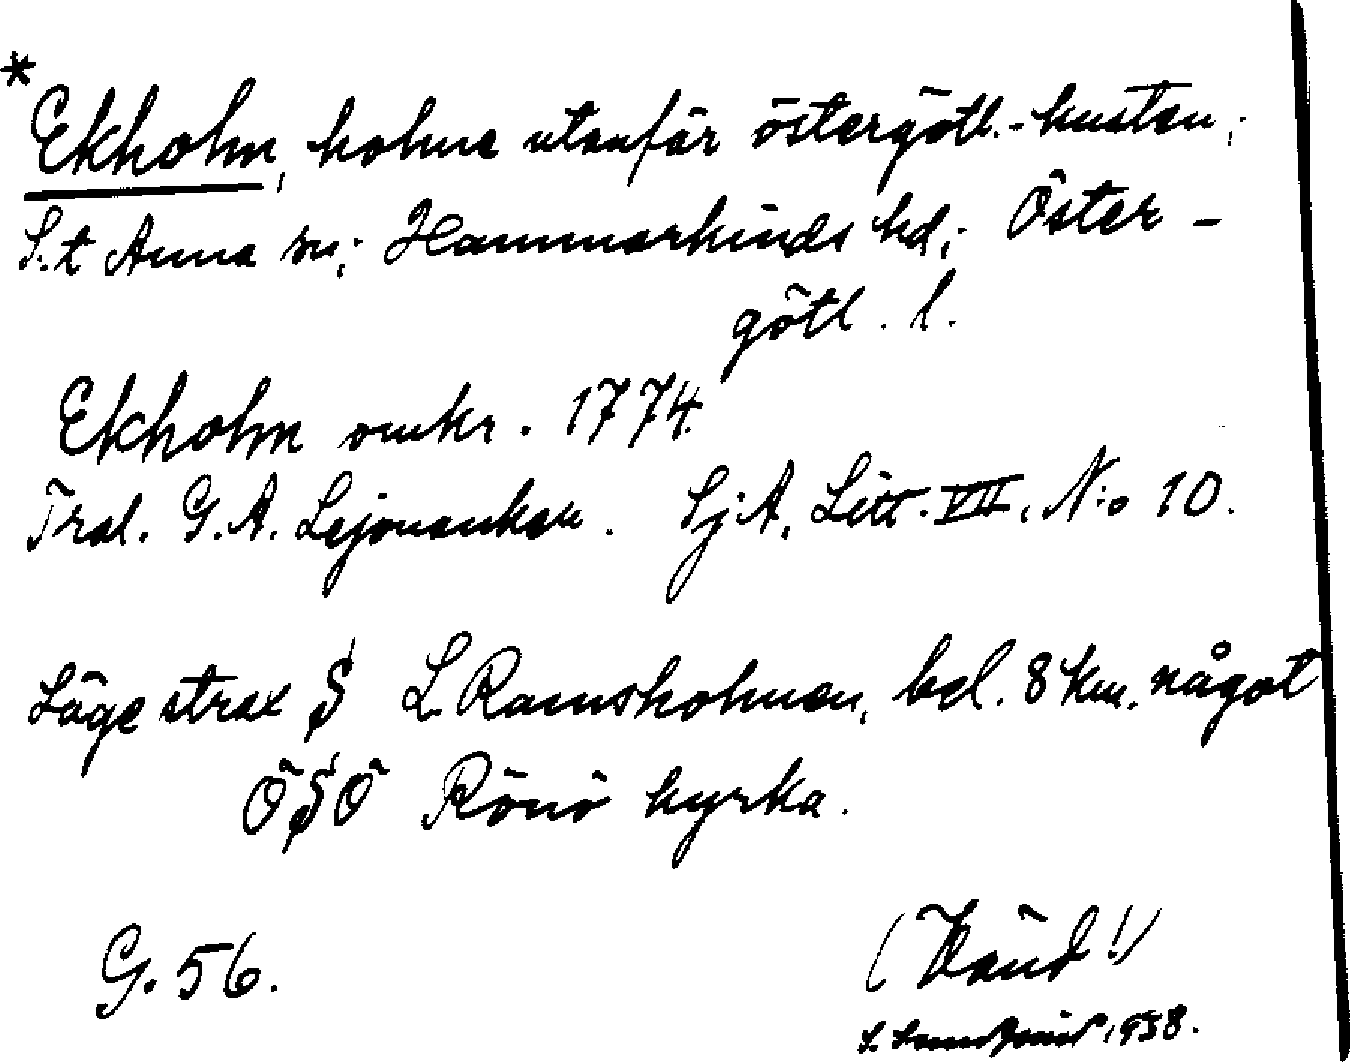 *
Ekholm, holme utanför östergötl.-kusten;
S:t Anna sn; Hammarkinds hd; Öster-
götl. l.
Ekholm omkr. 1774.
Tral. G. A. Lejonankar. Sj:A, Litt. VII, N:o 10.
Läge strax S L. Ramsholmen, bel. 8 km. något
ÖSÖ Rönö kyrka.
G. 56.
(Vänd!)
S. 1938.